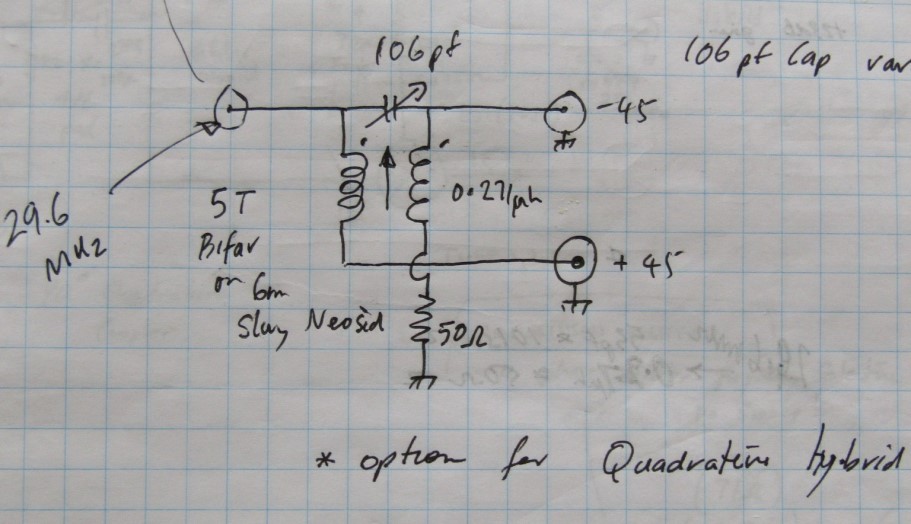 106pf
106 pf Cap var
-45
0.27µh
5T
Bifar
on 6m
Slug Neosid
29.6
MHz
+ 45
50Ω
* option for Quadrature hybrid